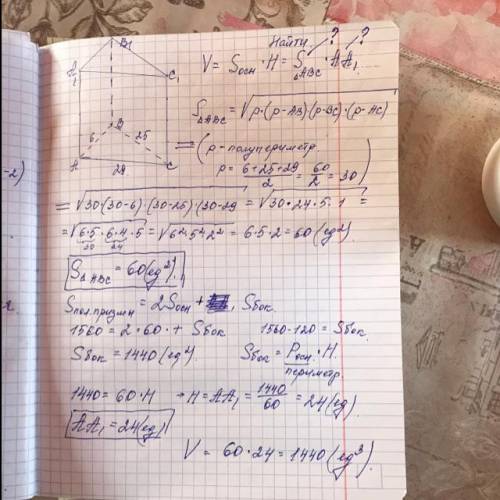 Найти ? ?
V = Sосн · H = S△ABC · AA₁
B₁
A₁
C₁
S△ABC = √p·(p-AB)(p-BC)·(p-AC)
B
6
25
A
29
C
= (p - полупериметр.
p = (6+25+29)/2 = 60/2 = 30)
= √30·(30-6)·(30-25)·(30-29 = √30·24·5·1 =
= √6·5·6·4·5 = √6²·5²·2² = 6·5·2 = 60 (ед²).
30 24
S△ABC = 60 (ед²).
Sпол.призмы = 2Sосн + Sбок.
1560 = 2·60 + Sбок 1560-120 = Sбок.
Sбок = 1440 (ед²). Sбок = Pосн. · H.
периметр.
1440 = 60·H → H = AA₁ = 1440/60 = 24 (ед)
AA₁ = 24 (ед)
V = 60·24 = 1440 (ед³)